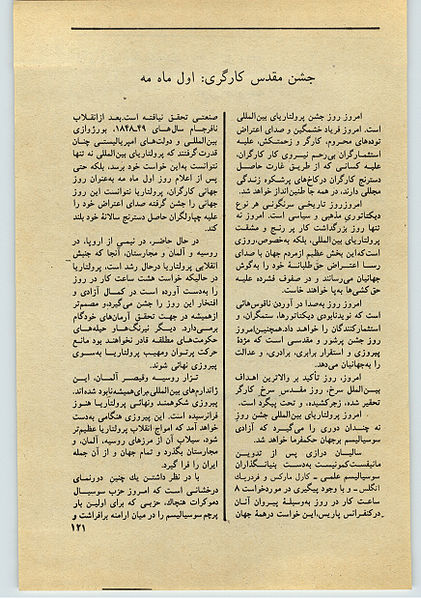 جشن مقدس کارگری: اول ماه مه
امروز روز جشن پرولتاریای بین‌المللی
است. امروز فریاد خشمگین و صدای اعتراض
توده‌های محروم، کارگر و زحمتکش، علیه
استثمارگران بی‌رحم نیروی کار کارگران،
علیه کسانی که از طریق غارت حاصل
دسترنج کارگران درکاخ‌های پرشکوه زندگی
مجللی دارند، در همه جا طنین‌انداز خواهد شد.
امروزروز تاریخی سرنگونی هر نوع
دیکتاتوری مذهبی و سیاسی است. امروز نه
تنها روز بزرگداشت کار پر رنج و مشقت
پرولتاریای بین‌المللی، بلکه به‌خصوص،روزی
است‌که‌این بخش عظیم ازمردم جهان با صدای
رسا اعتراض حق‌طلبانهٔ خود را به‌گوش
جهانیان می‌رسانند و در صفوف فشرده علیه
حق‌کشی‌ها به‌پا خواهند خاست.
امروز روز به‌صدا در آوردن ناقوس‌هائی
است که نویدنابودی دیکتاتورها، ستمگران، و
استثمارکنندگان را خواهد داد.همچنین‌امروز
روز جشن پرشور و مقدسی است که مژدهٔ
پیروزی و استقرار برابری، برادری، و عدالت
را به‌جهانیان می‌دهد.
امروز، روز تأکید بر والاترین اهداف
بین‌الملل سرخ، روز مقدس سرخ کارگر
تحقیر شده، زجرکشیده، و تحت پیگرد است.
امروز پرولتاریای بین‌المللی جشن روز
نه چندان دوری را می‌گیرد که آزادی
سوسیالیسم برجهان حکمفرما خواهد شد.
سالیان درازی پس از تدوین
مانیفست‌کمونیست به‌دست بنیانگذاران
سوسیالیسم علمی ــ کارل مارکس و فردریک
انگلس ــ و با وجود پیگیری در موردخواست ۸
ساعت کار در روز به‌وسیلهٔ پیروان آنان
درکنفرانس پاریس،این خواست درهمهٔ جهان
صنعتی تحقق نیافته است.بعد ازانقلاب
نافرجام سال‌های ۴۹ـ۱۸۴۸، بورژوازی
بین‌المللی و دولت‌های امپریالیستی چنان
قدرت گرفتند که پرولتاریای بین‌المللی نه تنها
نتوانست به‌این خواست خود برسد، بلکه حتی
پس از اعلام روز اول ماه مه به‌عنوان روز
جهانی کارگران، پرولتاریا نتوانست این روز
جهانی را جشن گرفته صدای اعتراض خود را
علیه چپاولگران حاصل دسترنج سالانهٔ خود بلند
کند.
در حال حاضر، در نیمی از اروپا، در
روسیه و آلمان و مجارستان، آنجا که جنبش
انقلابی پرولتاریا درحال رشد است، پرولتاریا
در حالیکه خواست هشت ساعت کار در روز
را به‌دست آورده است در کمال آزادی و
افتخار این روز را جشن می‌گیرد،و مصمم‌تر
ازهمیشه در جهت تحقق آرمان‌های خودگام
برمی‌دارد. دیگر نیرنگ‌ها و حیله‌های
حکومت‌های مطلقه قادر نخواهند بود مانع
حرکت پرتوان ومهیب پرولتاریا به‌سوی
پیروزی نهائی شوند.
تزار روسیه وقیصر آلمان، این
ژاندارم‌های بین‌المللی،برای‌همیشه‌نابودشده‌اند.
پیروزی شکوهمند ونهائی پرولتاریا هنوز
فرانرسیده است. این پیروزی هنگامی به‌دست
خواهد آمد که امواج انقلاب پرولتاریا عظیم‌تر
شود، سیلاب آن از مرزهای روسیه، آلمان، و
مجارستان بگذرد و تمام جهان و از آن جمله
ایران را فرا گیرد.
با در نظر داشتن یك چنین دورنمای
درخشانی است که امروز حزب سوسیال
دموکرات هنچاک، حزبی که برای اولین بار
پرچم سوسیالیسم را در میان ارامنه برافراشت و
۱۲۱